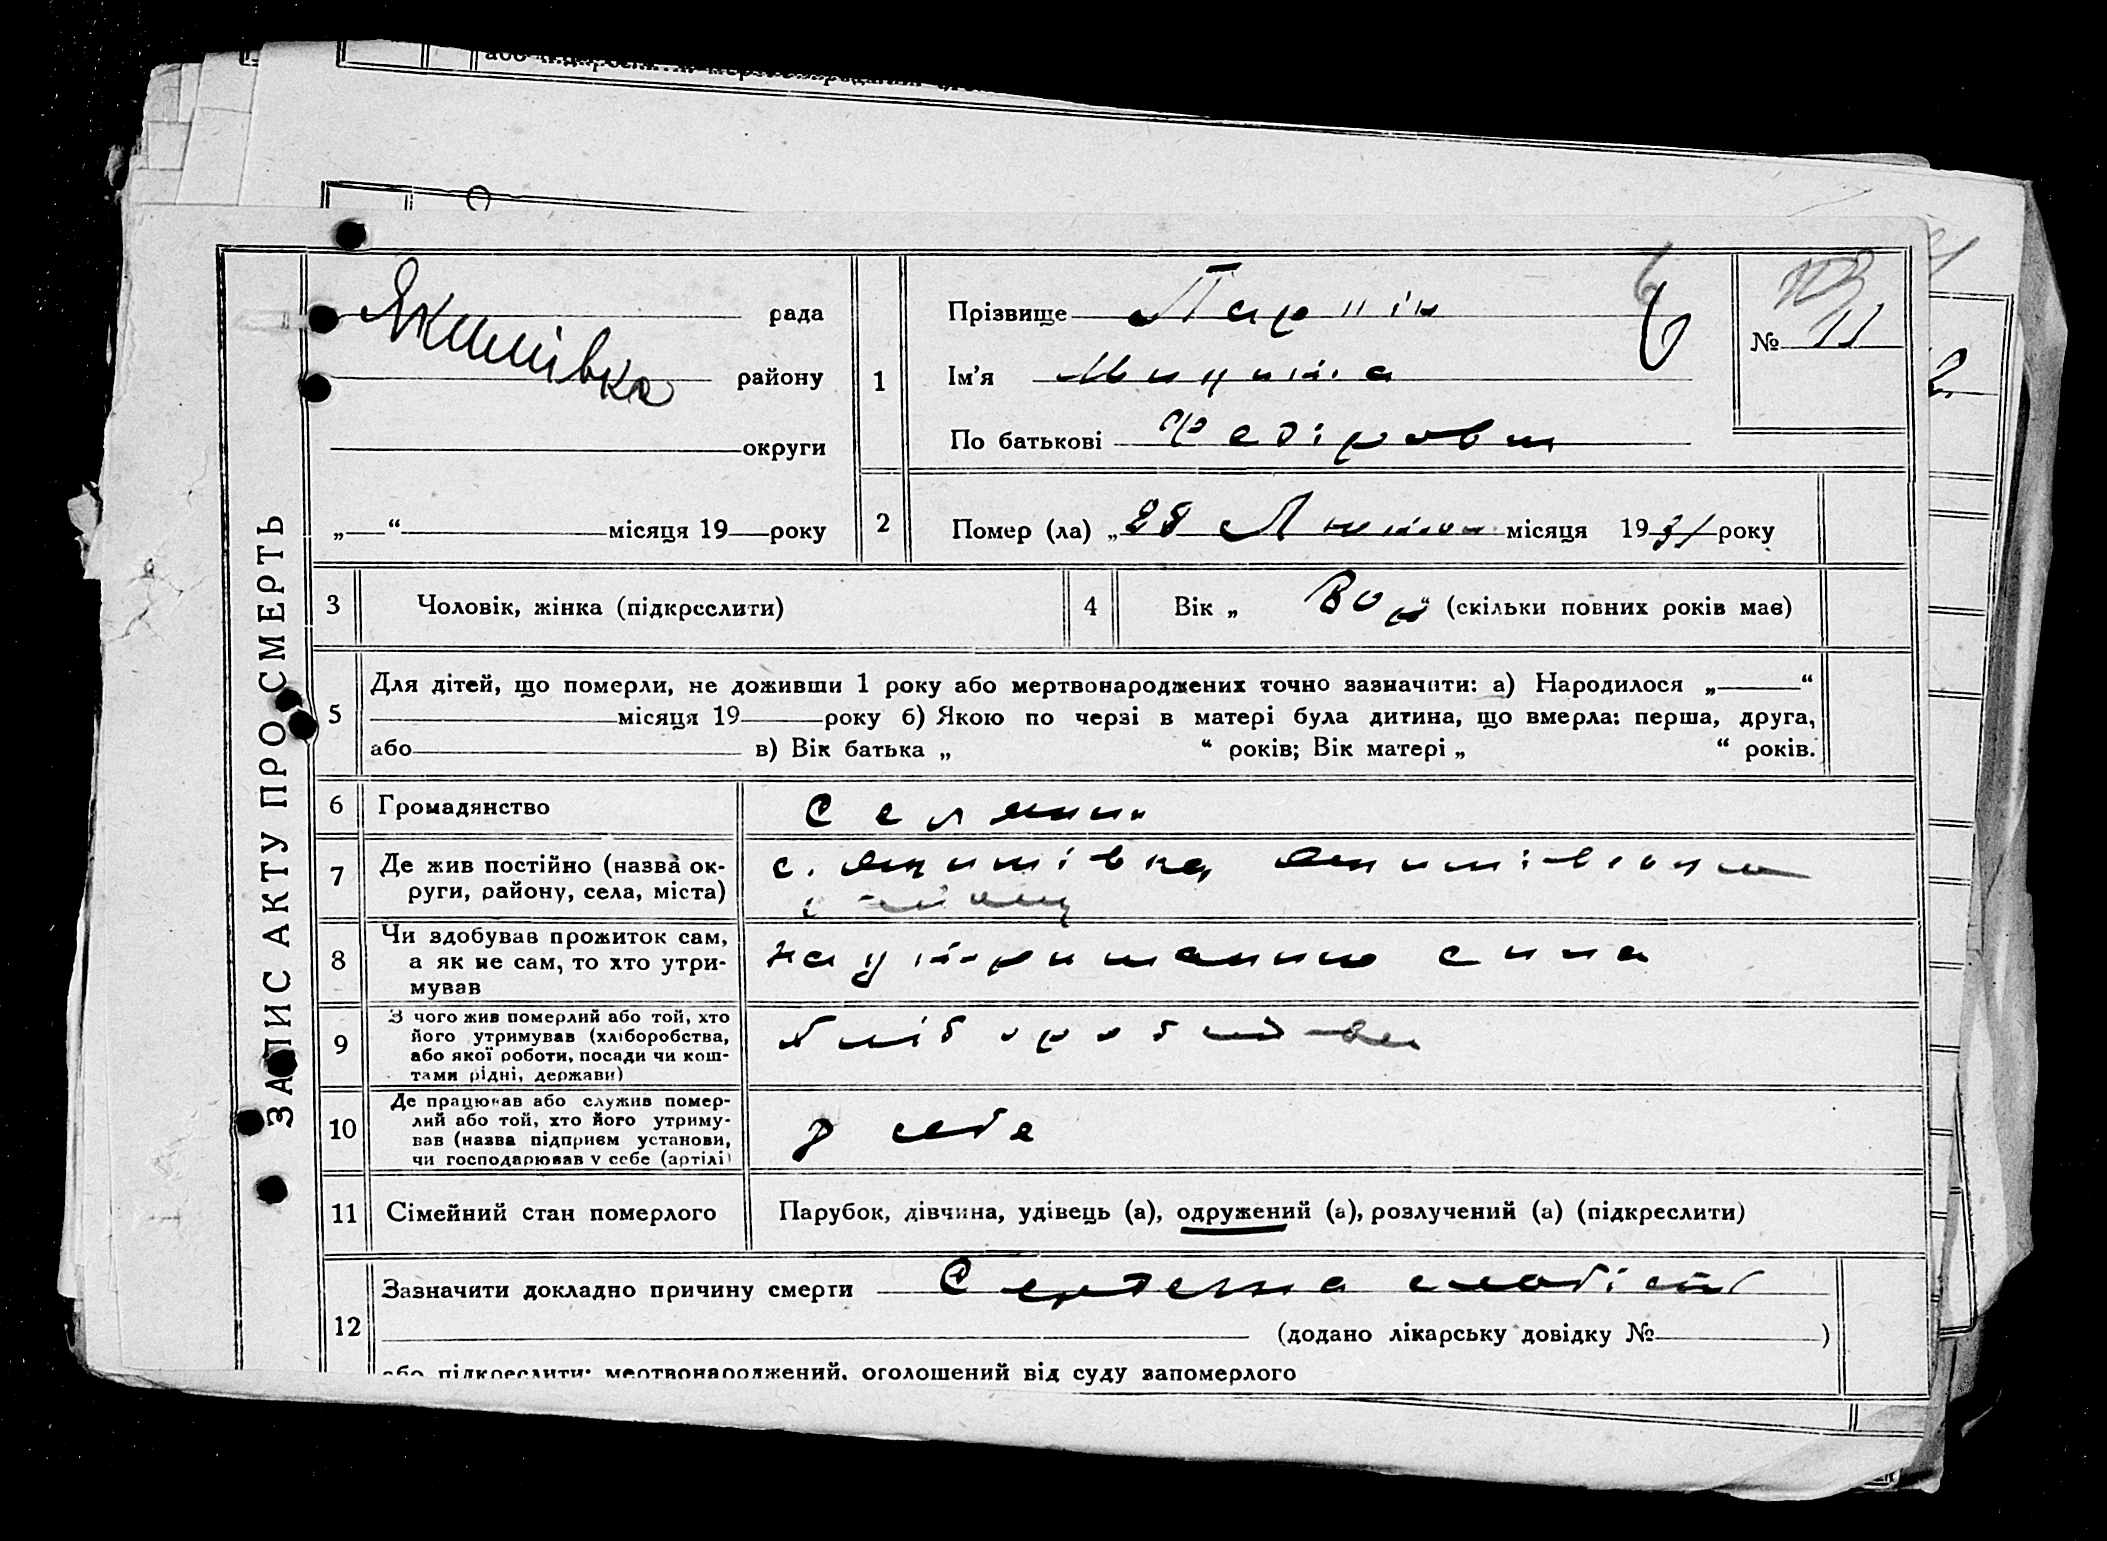 ЗАПИС АКТУ ПРО СМЕРТЬ
Якимівка
рада
району
округи
„ “ місяця 19 року
1
Прізвище
Ім’я Микита
По батькові Федорович
№ 11
2
Помер (ла) „28 Лютого місяця 1931 року
3
Чоловік, жінка (підкреслити)
4
Вік „ 80 р “ (скільки повних років має)
5
Для дітей, що померли, не доживши 1 року або мертвонароджених точно зазначити: а) Народилося „ “
місяця 19 року б) Якою по черзі в матері була дитина, що вмерла: перша, друга,
або в) Вік батька „ “ років; Вік матері „ “ років.
6
Громадянство
Селянин
7
Де жив постійно (назва ок-
руги, району, села, міста)
с. Якимівка, Якимівського
району
8
Чи здобував прожиток сам,
а як не сам, то хто утри-
мував
на утриманню сина
9
З чого жив померлий або той, хто
його утримував (хліборобства,
або якої роботи, посади чи кош-
тами рідні, держави)
10
Де працював або служив помер-
лий або той, хто його утриму-
вав (назва підприєм установи,
чи господарював у себе (артілі)
у себе
11
Сімейний стан померлого
Парубок, дівчина, удівець (а), одружений (а), розлучений (а) (підкреслити)
12
Зазначити докладно причину смерти Сердечна слабість
(додано лікарську довідку № )
або підкреслити: мертвонароджений, оголошений від суду запомерлого